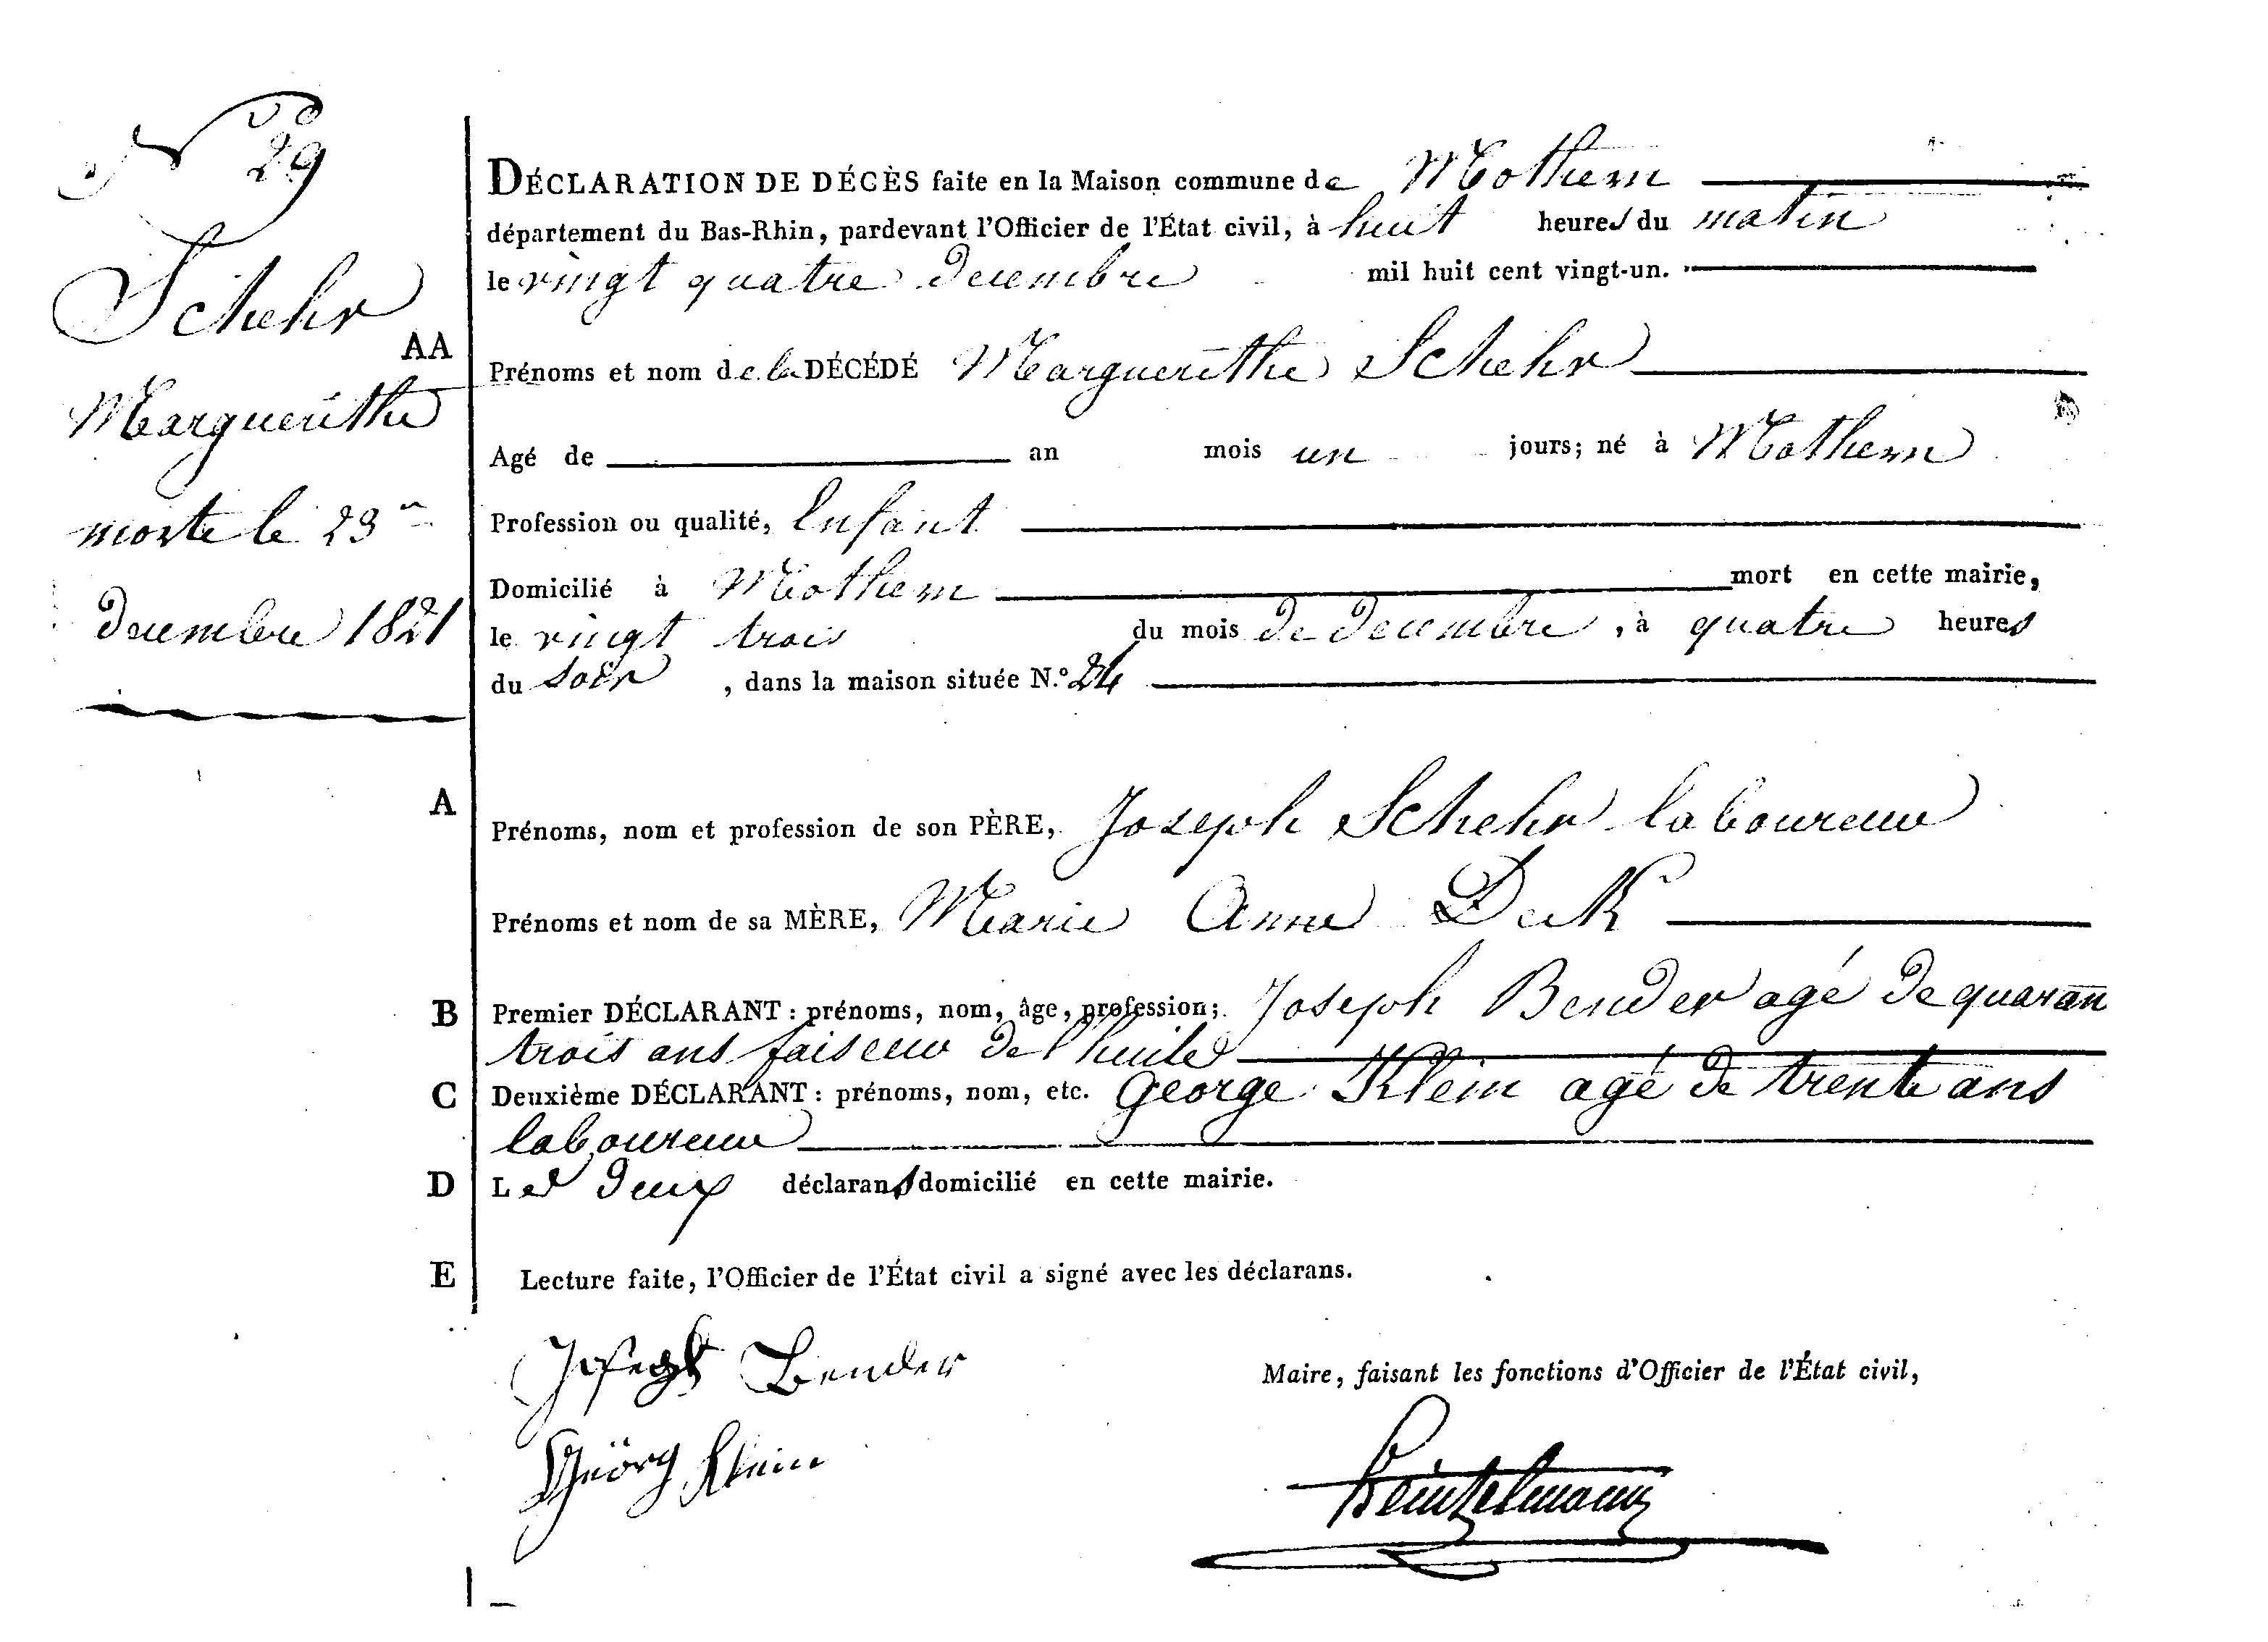 No 29
Schehr
AA
Marguerithe
morte le 23
decembre 1821
DÉCLARATION DE DÉCÈS faite en la Maison commune de Mothern
département du Bas-Rhin, pardevant l'Officier de l'État civil, à huit heures du matin
le vingt quatre decembre mil huit cent vingt-un.
Prénoms et nom de la DÉCÉDÉ Marguerithe Schehr
Agé de an mois un jours; né à Mothern
Profession ou qualité, Enfant
Domicilié à Mothern mort en cette mairie,
le vingt trois du mois de decembre, à quatre heures
du soir, dans la maison située N.° 24
A
Prénoms, nom et profession de son PÈRE, Joseph Schehr laboureur
Prénoms et nom de sa MÈRE, Marie Anne Deck
B Premier DÉCLARANT : prénoms, nom, âge, profession; Joseph Bender agé de quaran
trois ans faiseur de l'huile
C Deuxième DÉCLARANT : prénoms, nom, etc. George Klein agé de trente ans
laboureur
D Les deux déclarans domicilié en cette mairie.
E Lecture faite, l'Officier de l'État civil a signé avec les déclarans.
Joseph Bender
Maire, faisant les fonctions d'Officier de l'État civil,
Geörg Klein